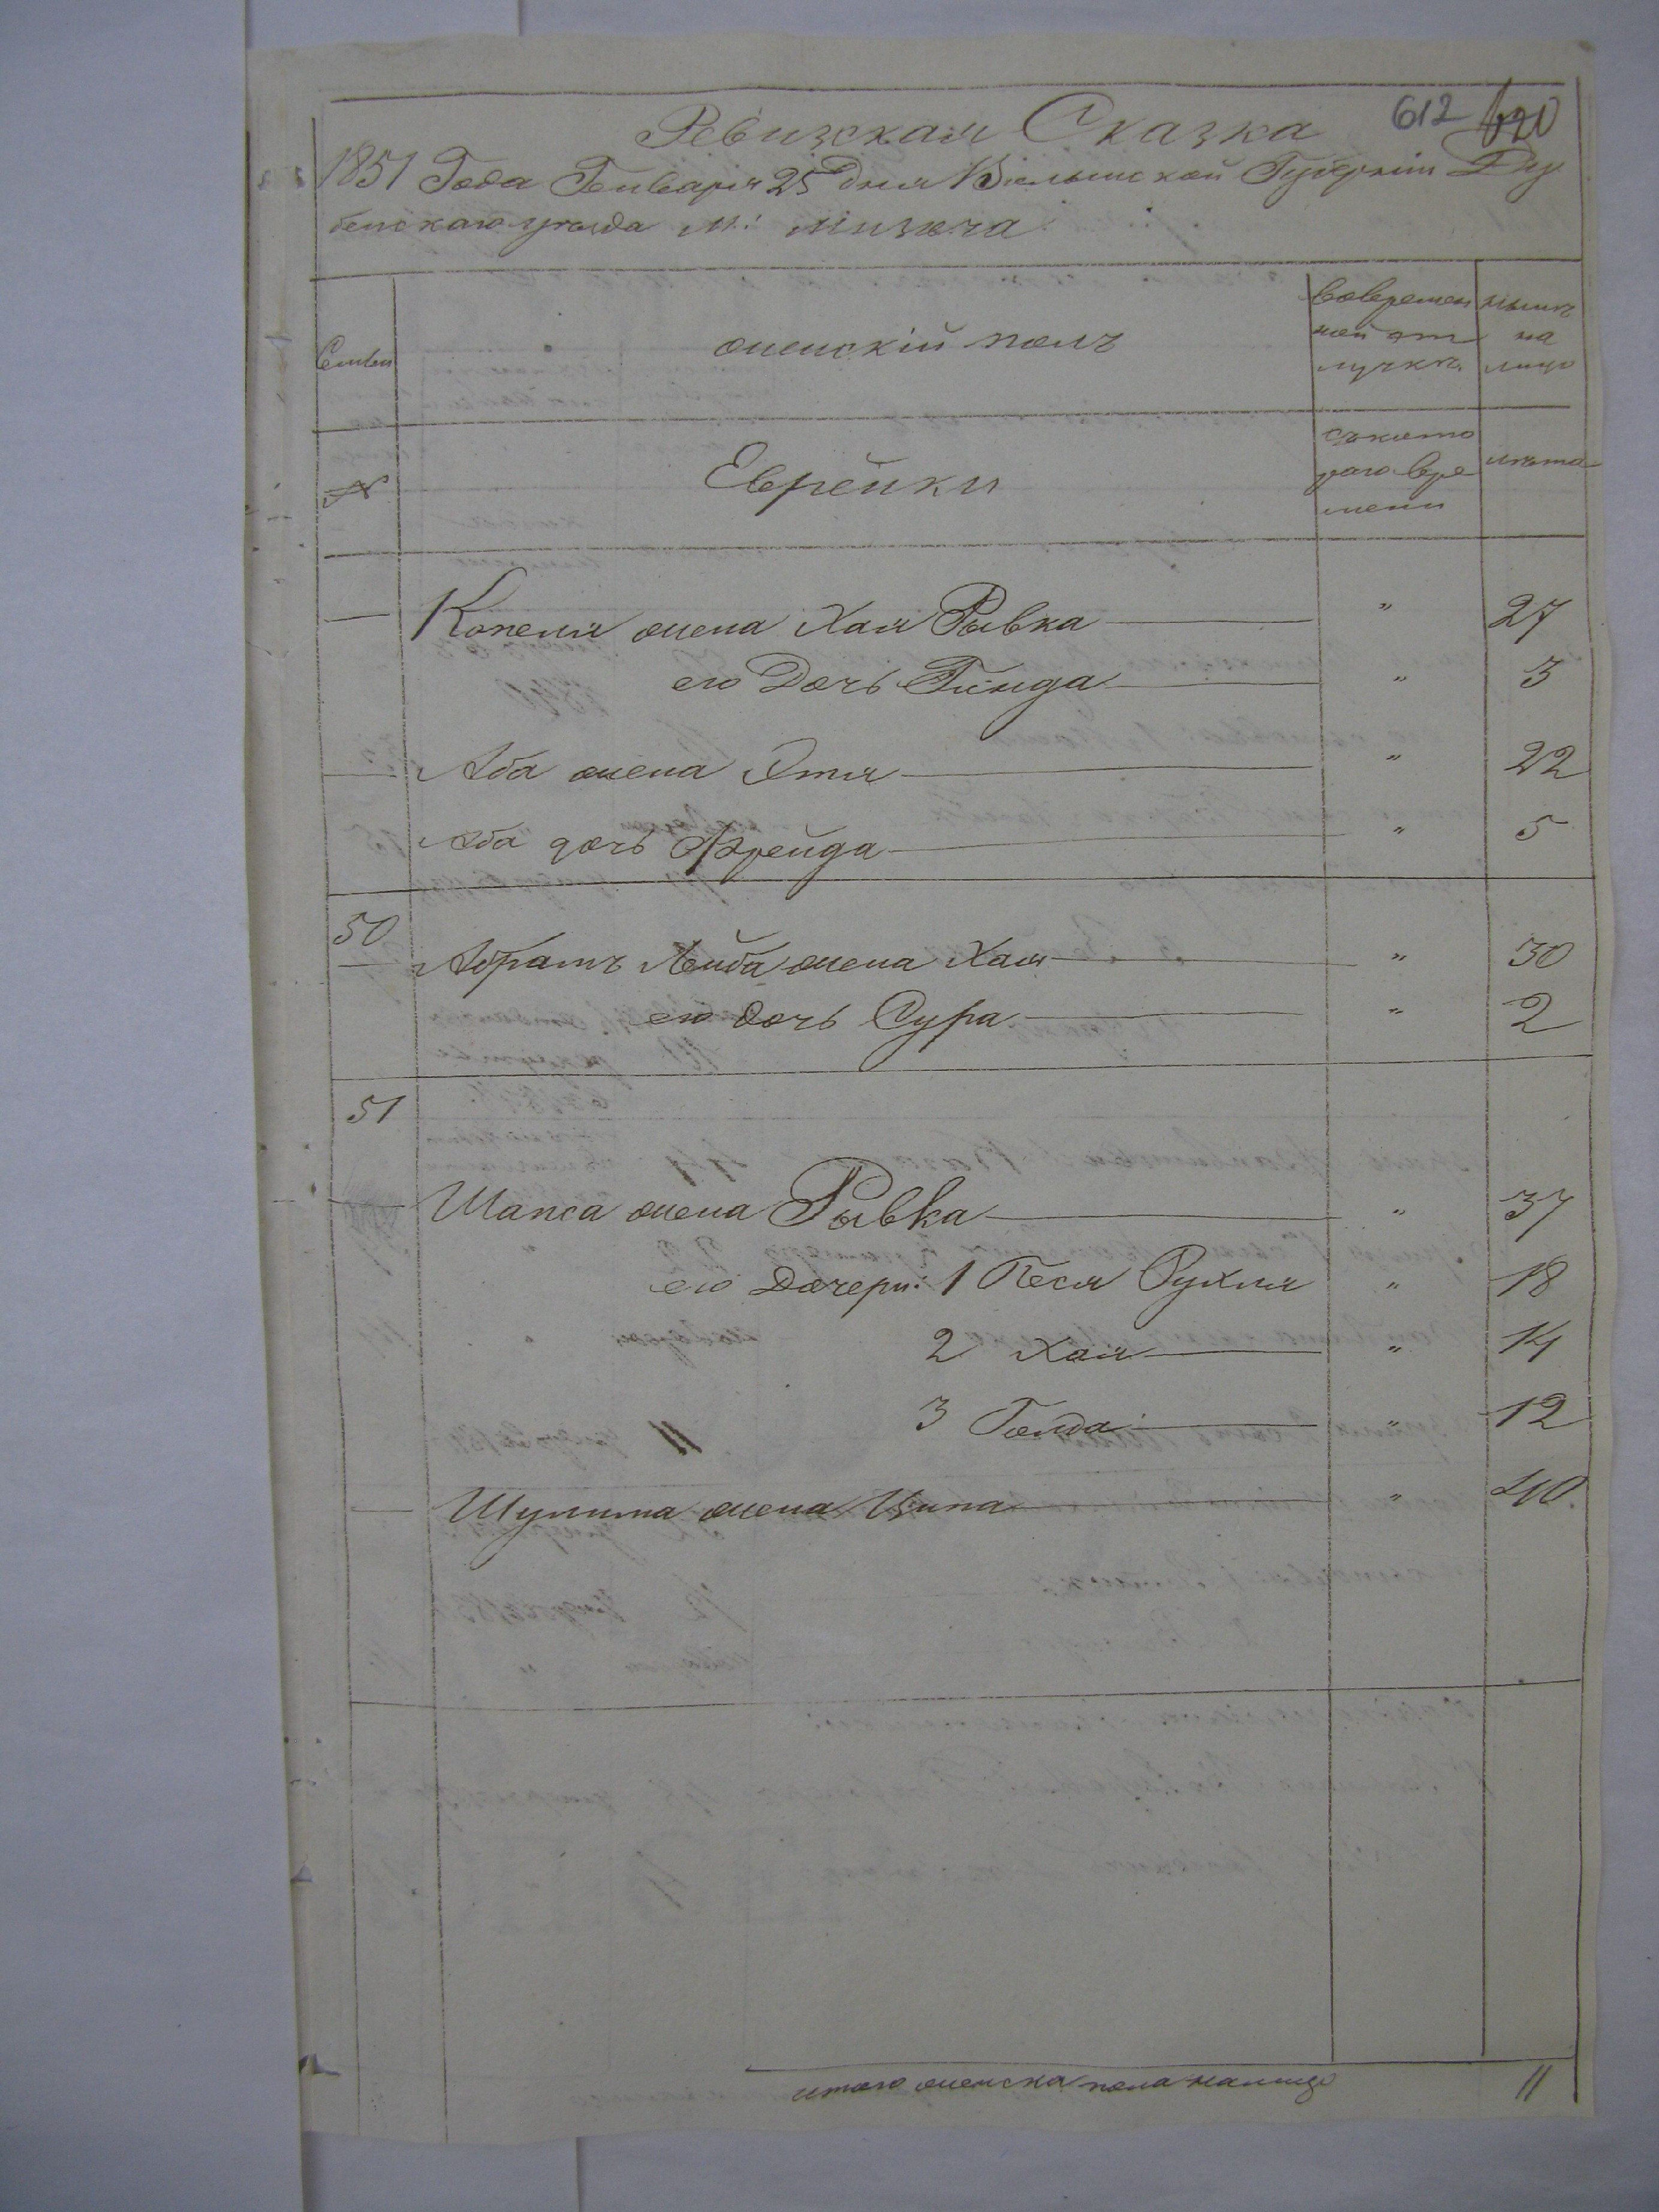 612 620
Ревизская Сказка
1851 Года Генваря 25 Дня Волынской Губерніи Ду
бенскаго уезда м: мизоча
Семьи
женскій полъ
вовремен
ной от
лучкѣ
нынѣ
на
лицо
№
Еврейки
съкото
раго вре
мени
лѣта
Копеля жена Хая Рывка " 27
его Дочь Гинда " 3
Аба жена Этя " 22
Аба дочь Фрейда " 5
50
Абрамъ Лейба жена Хая " 30
его дочь Сура " 2
51
Шапса жена Рывка " 37
его Дочери: 1 Песя Рухля " 18
2 Хая " 14
3 Голда " 12
Шулима жена Ципа " 40
итого женска пола налицо 11